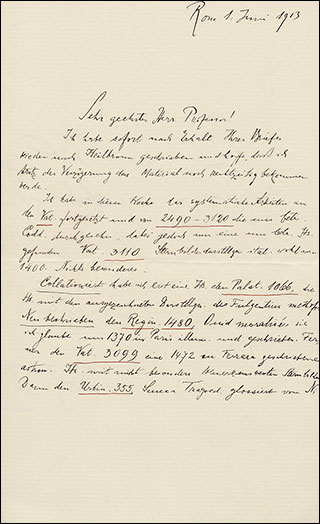 Rom 1. Juni 1913
Sehr geehrter Herr Professor!
Ich habe sofort nach Erhalt Ihres Briefes
wieder nach Heilbronn geschrieben und hoffe, daß ich
trotz der Verzögerung das Material noch rechtzeitig bekommen
werde.
Ich habe in dieser Woche die systematischen Arbeiten
an den Vat. fortgesetzt und von 2490-3120 die mss. lat.
Codd. durchgesehen dabei jedoch nur eine neue Hs.
gefunden Vat. 3110 Sternbilderdarstellgn ital. wohl um
1400. Nichts besonderes.
Collationiert habe ich erst eine Hs. den Palat. 1066, die
Hs. mit den ausgezeichneten Darstellgn. des Fulgentius metaphor.
Neu beschrieben den Regin. 1480, Ovid moralisé die
ich glaube um 1370 in Paris illum. und geschrieben. Fer-
ner den Vat. 3099 eine 1472 in geschriebene
astron. Hs. mit nicht besonders bemerkenswerten Sternbildern
Dann den Urbin. 355, Seneca Tragoed. glossiert von N.